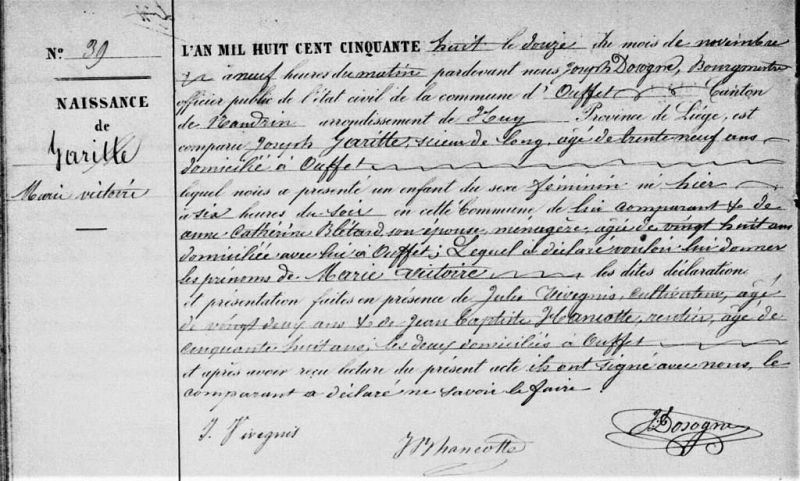 N° 39
NAISSANCE
de
Garitte
Marie victoire
L'AN MIL HUIT CENT CINQUANTE huit le douze du mois de novembre
à neuf heures du matin pardevant nous Joseph Dosogne, Bourgmestre
officier public de l'état civil de la commune d'Ouffet Canton
de Nandrin arrondissement de Huy Province de Liége, est
comparu Joseph Garitte, scieur de long, agé de trente neuf ans
domicilié à Ouffet
lequel nous a présenté un enfant du sexe féminin né hier
à six heures du soir en cette Commune de lui comparant & de
anne Catherine Blétard, son épouse, menagère, agée de vingt huit ans
domiciliée avec lui à Ouffet; Lequel a déclaré vouloir lui donner
les prénoms de Marie victoire les dites déclaration
et présentation faites en présence de Jules Vivegnis, cultivateur, agé
de vingt deux ans & de Jean Baptiste Hancotte, rentier, agé de
cinquante huit ans, les deux domiciliés à Ouffet
et après avoir reçu lecture du présent acte ils ont signé avec nous, le
comparant a déclaré ne savoir le faire.
J. Vivegnis
J B hancotte
J Dosogne